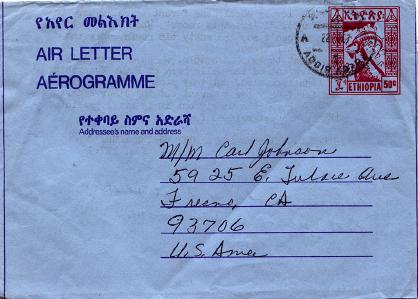 የአየር መልእክት
AIR LETTER
AÉROGRAMME
ኢትዮጵያ
ETHIOPIA
50c
የተቀባይ ስምና አድራሻ
Addressee's name and address
M/M Carl Johnson
5925 E. Tulare Ave
Fresno, CA
93706
U.S. Amer